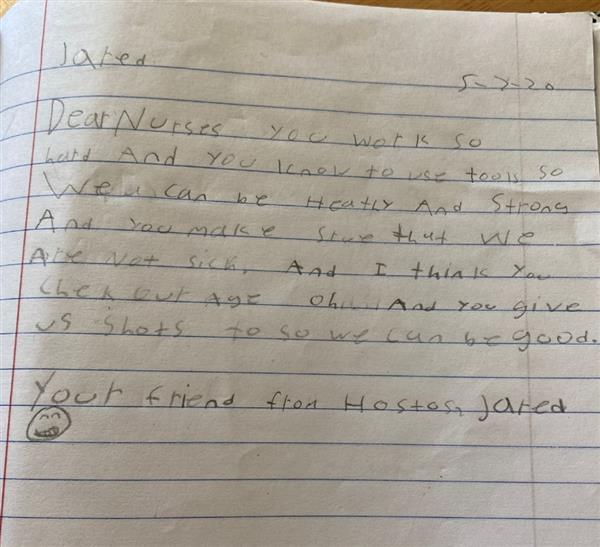 Jared
5-7-20
Dear Nurses you work so
hard And you know to use tools so
We can be Heatly And Strong
And you make srue that we
Are Not sick. And I think you
chek our Age Oh And you give
us shots to so we can be good.
Your friend from Hostos, Jared